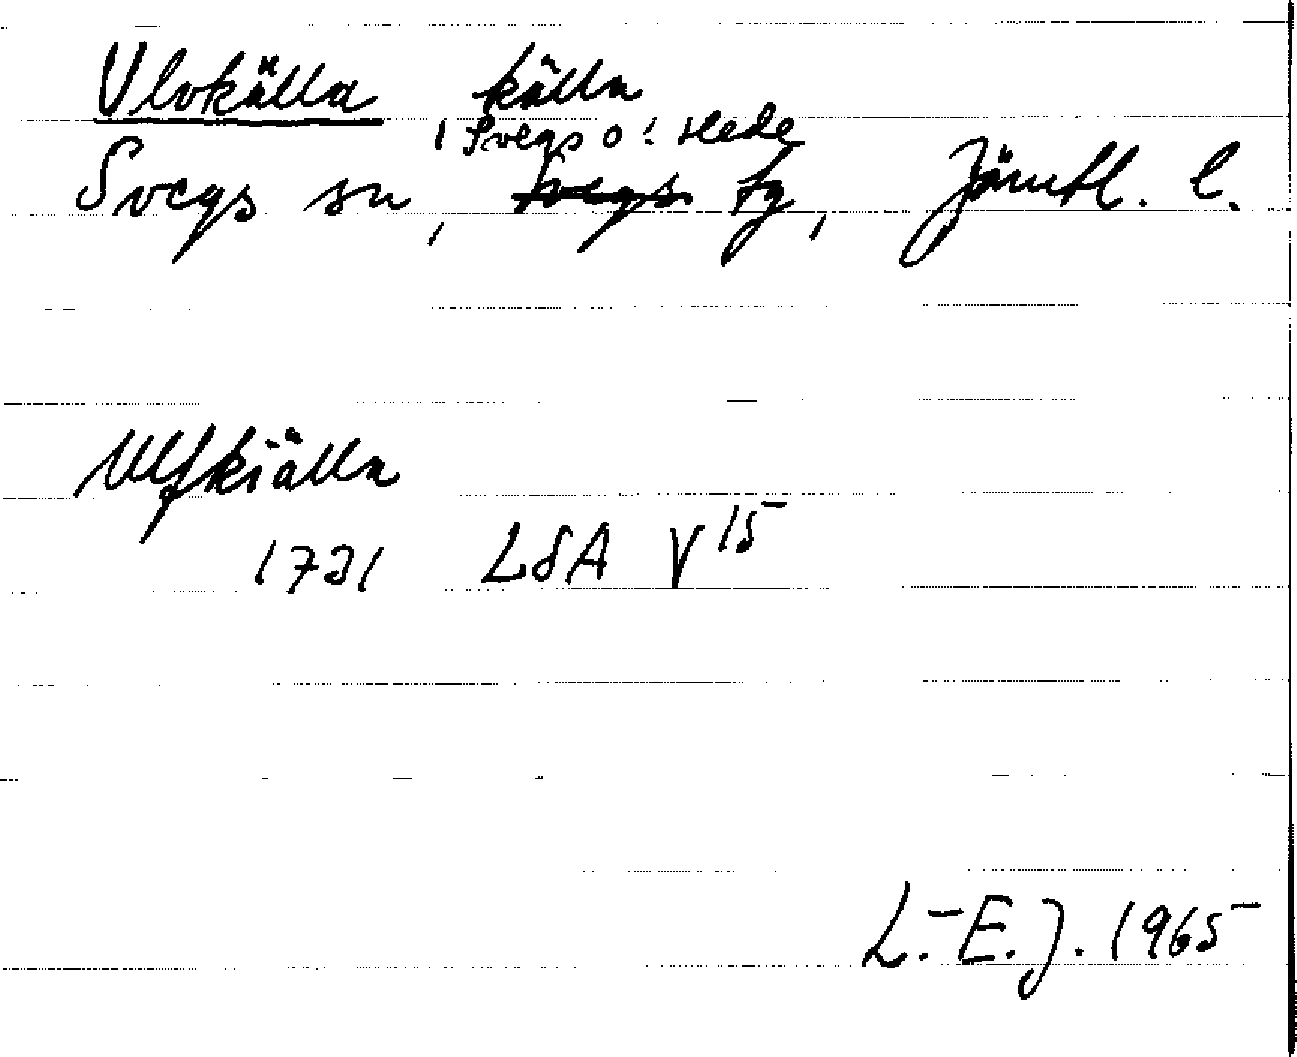 Ulvkälla källa
Svegs o. Hede
Svegs sn, Svegs tg, Jämtl. l.
Ulfkiälla
1731 LSA V 15
L.-E.J. 1965